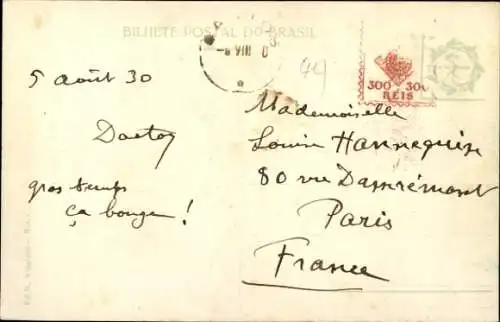 BILHETE POSTAL DO BRASIL
VIII
44
300 300
REIS
5 août 30
gros temps
ça bouge !
Mademoiselle
Louise Hannequin
80 rue Damrémont
Paris
France